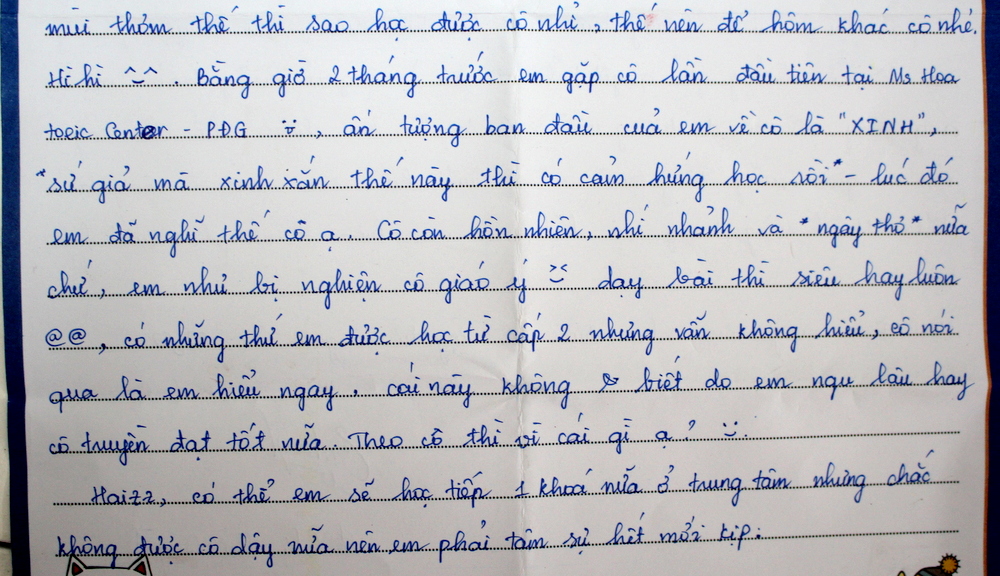 mùi thơm thế thì sao học được cô nhỉ, thế nên để hôm khác cô nhé.
Hihi ^^. Bằng giờ 2 tháng trước em gặp cô lần đầu tiên tại Ms Hoa
toeic Center - PĐG :), ấn tượng ban đầu của em về cô là "XINH",
"sứ giả mà xinh xắn thế này thì có cảm hứng học rồi" - lúc đó
em đã nghĩ thế cô ạ. Cô còn hồn nhiên, nhí nhảnh và "ngây thơ" nữa
chứ, em như bị nghiện cô giáo ý >< dạy bài thì siêu hay luôn
@@, có những thứ em được học từ cấp 2 nhưng vẫn không hiểu, cô nói
qua là em hiểu ngay. cái này không biết do em ngu lâu hay
cô truyền đạt tốt nữa. Theo cô thì vì cái gì ạ? :).
Haizz, có thể em sẽ học tiếp 1 khoá nữa ở trung tâm nhưng chắc
không được cô dậy nữa nên em phải tâm sự hết mới kịp.